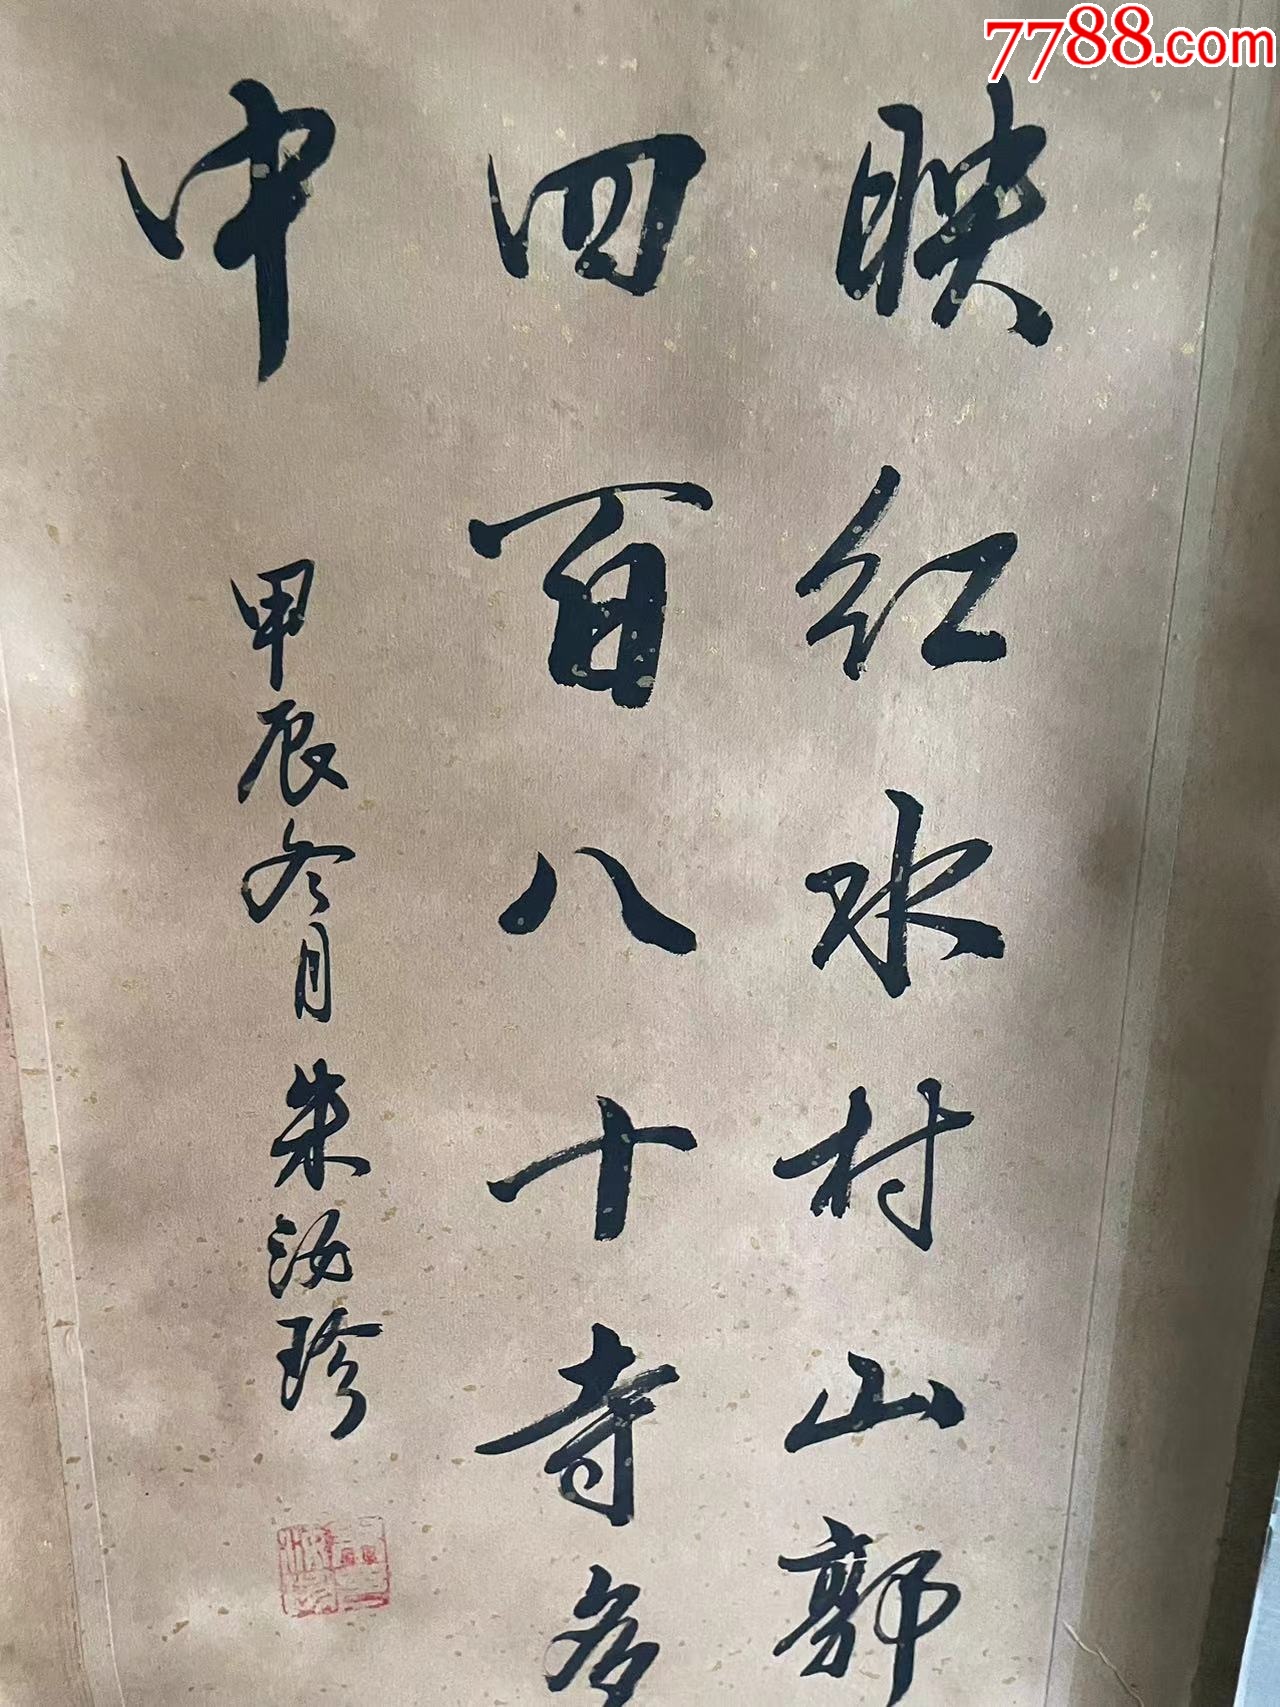 7788.com
映红水村山郭
四百八十寺多
中
甲辰冬月朱汝珍